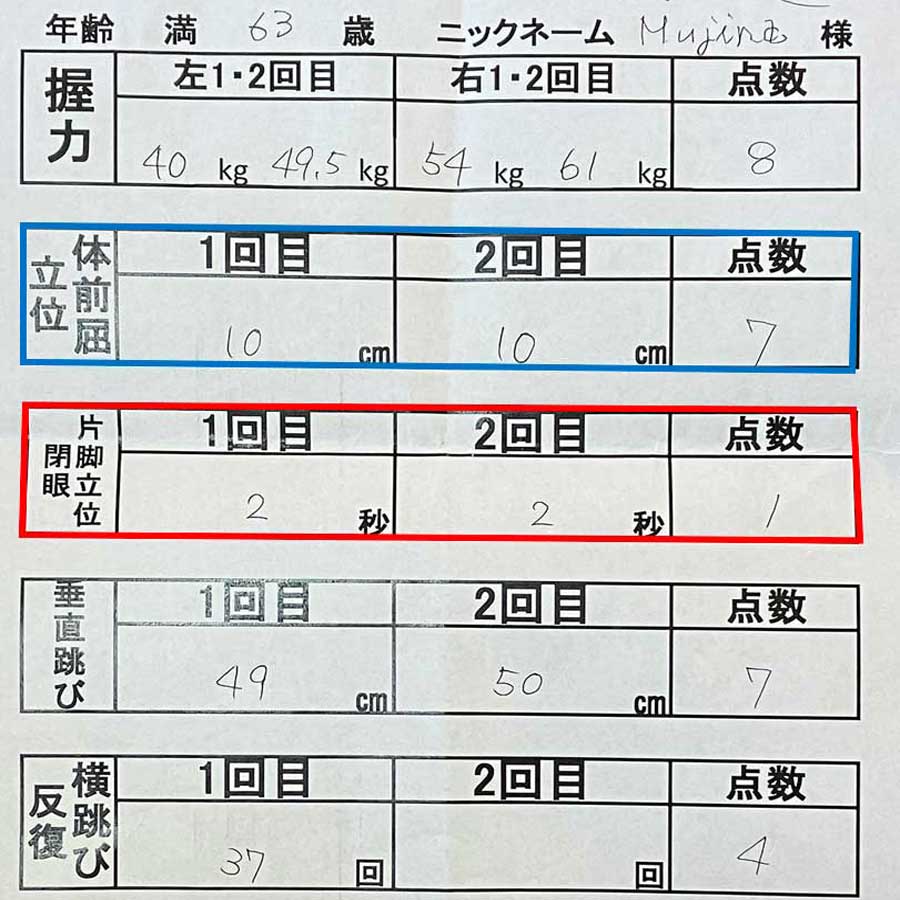 年齢 満 63 歳 ニックネーム Mujina 様
握力 左1・2回目 右1・2回目 点数
40 kg 49.5 kg 54 kg 61 kg 8
立位体前屈 1回目 2回目 点数
10 cm 10 cm 7
閉眼片脚立位 1回目 2回目 点数
2 秒 2 秒 1
垂直跳び 1回目 2回目 点数
49 cm 50 cm 7
反復横跳び 1回目 2回目 点数
37 回 回 4